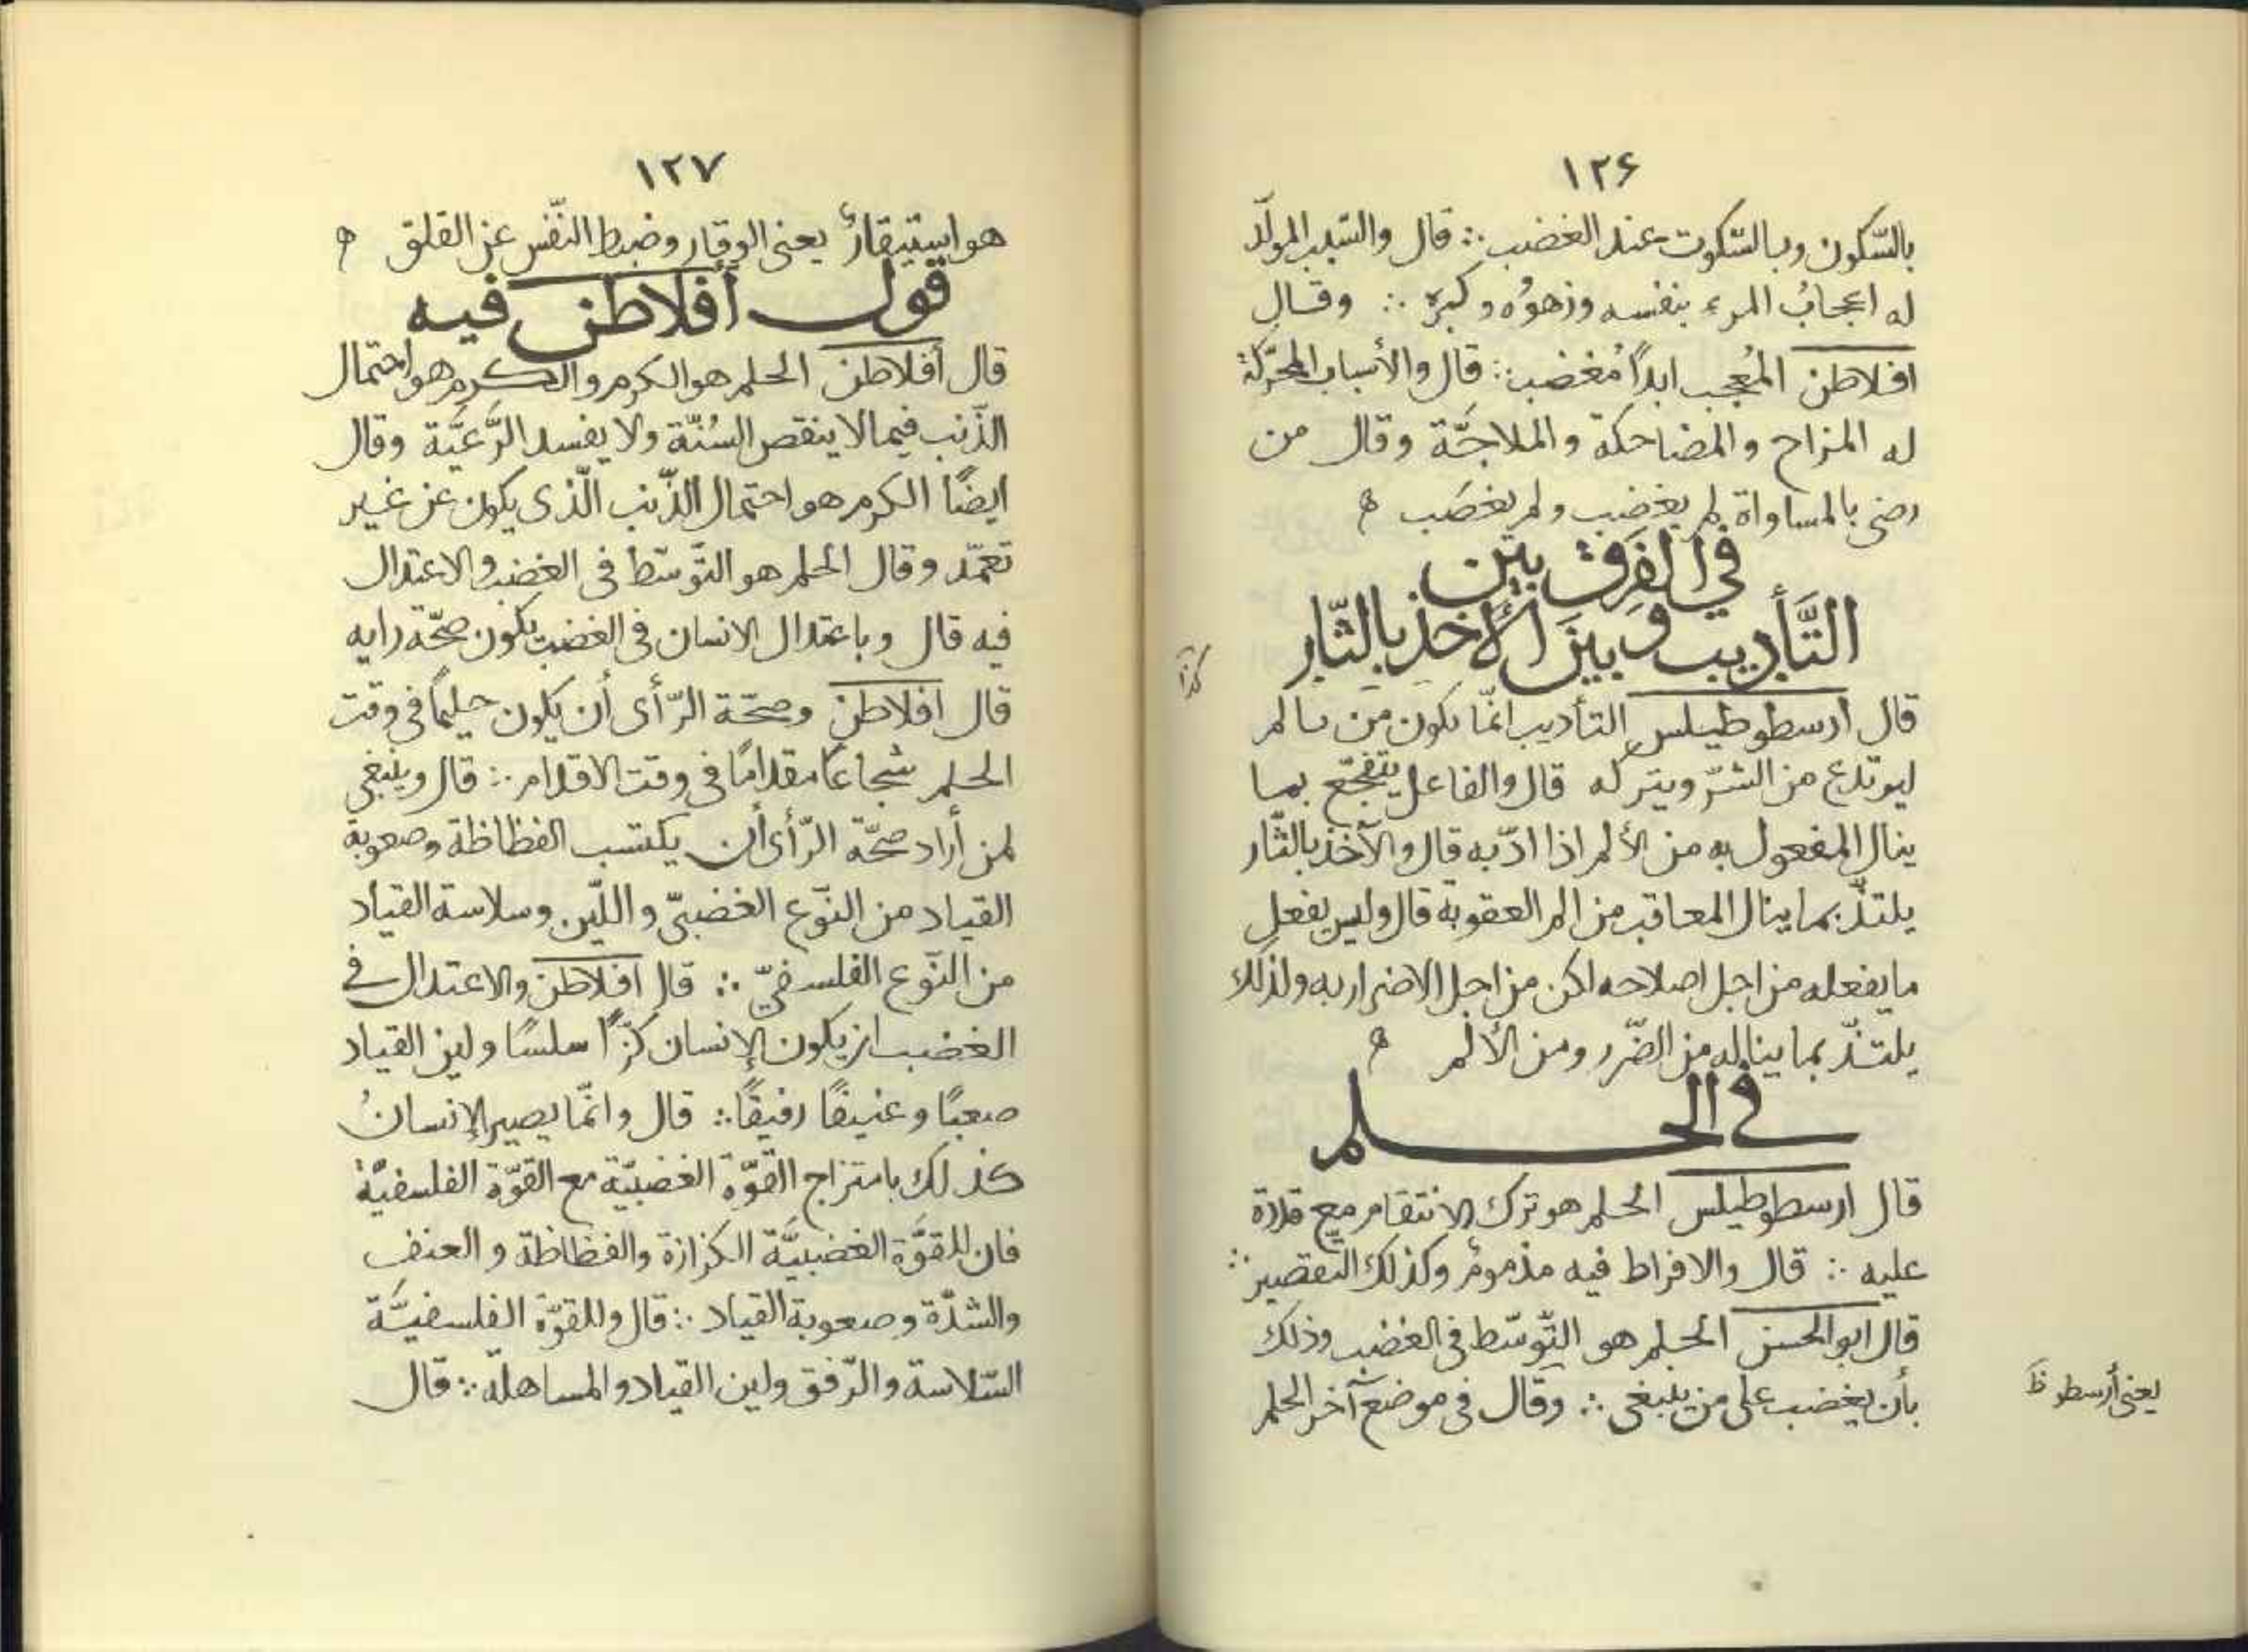 ١٢۶
بالسّكون وبالسّكوت عند الغضب ∴ قال والسّبب المولّد
له اعجابُ المرء بنفسه وزهوُه وكبرُه ∴ وقال
افلاطن المُعجب ابداً مُغضب ∴ قال والأسباب المحرّكة
له المزاح والمضاحكة والملاجّة وقال من
رضى بالمساواة لم يغضب ولم يغضَب ه
في الفرق بين
التَّأديب وَبين الأخذ بالثّار
كذا
قال ارسطوطيلس التأديب انّما يكون من يالم
ليرتدع من الشرّ ويتركه قال والفاعل يتفجّع بما
ينال المفعول به من الألم اذا ادّبه قال والآخذ بالثّار
يلتذّ بما ينال المعاقب من الم العقوبة قال وليس يفعل
ما يفعله من اجل اصلاحه لكن من اجل الاضرار به ولذلك
يلتذّ بما يناله من الضّرر ومن الألم ه
في الحلم
قال ارسطوطيلس الحلم هو ترك الانتقام مع قدرة
عليه ∴ قال والافراط فيه مذمومٌ وكذلك التقصير ∴
قال ابو الحسن الحلم هو التّوسّط في الغضب وذلك
بأن يغضب على من ينبغى ∴ وقال في موضع آخر الحلم
يعنى أرسطو ظ
١٢٧
هو استيقارٌ يعنى الوقار وضبط النّفس عن القلق ه
قول أفلاطن فيه
قال أفلاطن الحلم هو الكرم والكرم هو احتمال
الذّنب فيما لا ينقص السُنّة ولا يفسد الرَّعيَّة وقال
ايضًا الكرم هو احتمال الذّنب الّذى يكون عن غير
تعمّد وقال الحلم هو التّوسّط في الغضب والاعتدال
فيه قال وباعتدال الانسان في الغضب يكون صحّة رايه
قال افلاطن وصحّة الرّأى أن يكون حليماً في وقت
الحلم شجاعًا مقدامًا في وقت الاقدام ∴ قال وينبغى
لمن أراد صحّة الرّأى أن يكتسب الفظاظة وصعوبة
القياد من النّوع الغضبىّ واللّين وسلاسة القياد
من النّوع الفلسفىّ ∴ قال افلاطن والاعتدال في
الغضب ان يكون الإنسان كزّاً سلسًا ولين القياد
صعبًا وعنيفًا رفيقًا ∴ قال وانّما يصير الإنسانُ
كذلك بامتزاج القوّة الغضبيّة مع القوّة الفلسفيّة
فان للقوَّة الغضبيَّة الكزازة والفظاظة والعنف
والشدّة وصعوبة القياد ∴ قال وللقوّة الفلسفيَّة
السّلاسة والرّفق ولين القياد والمساهلة ∴ قال